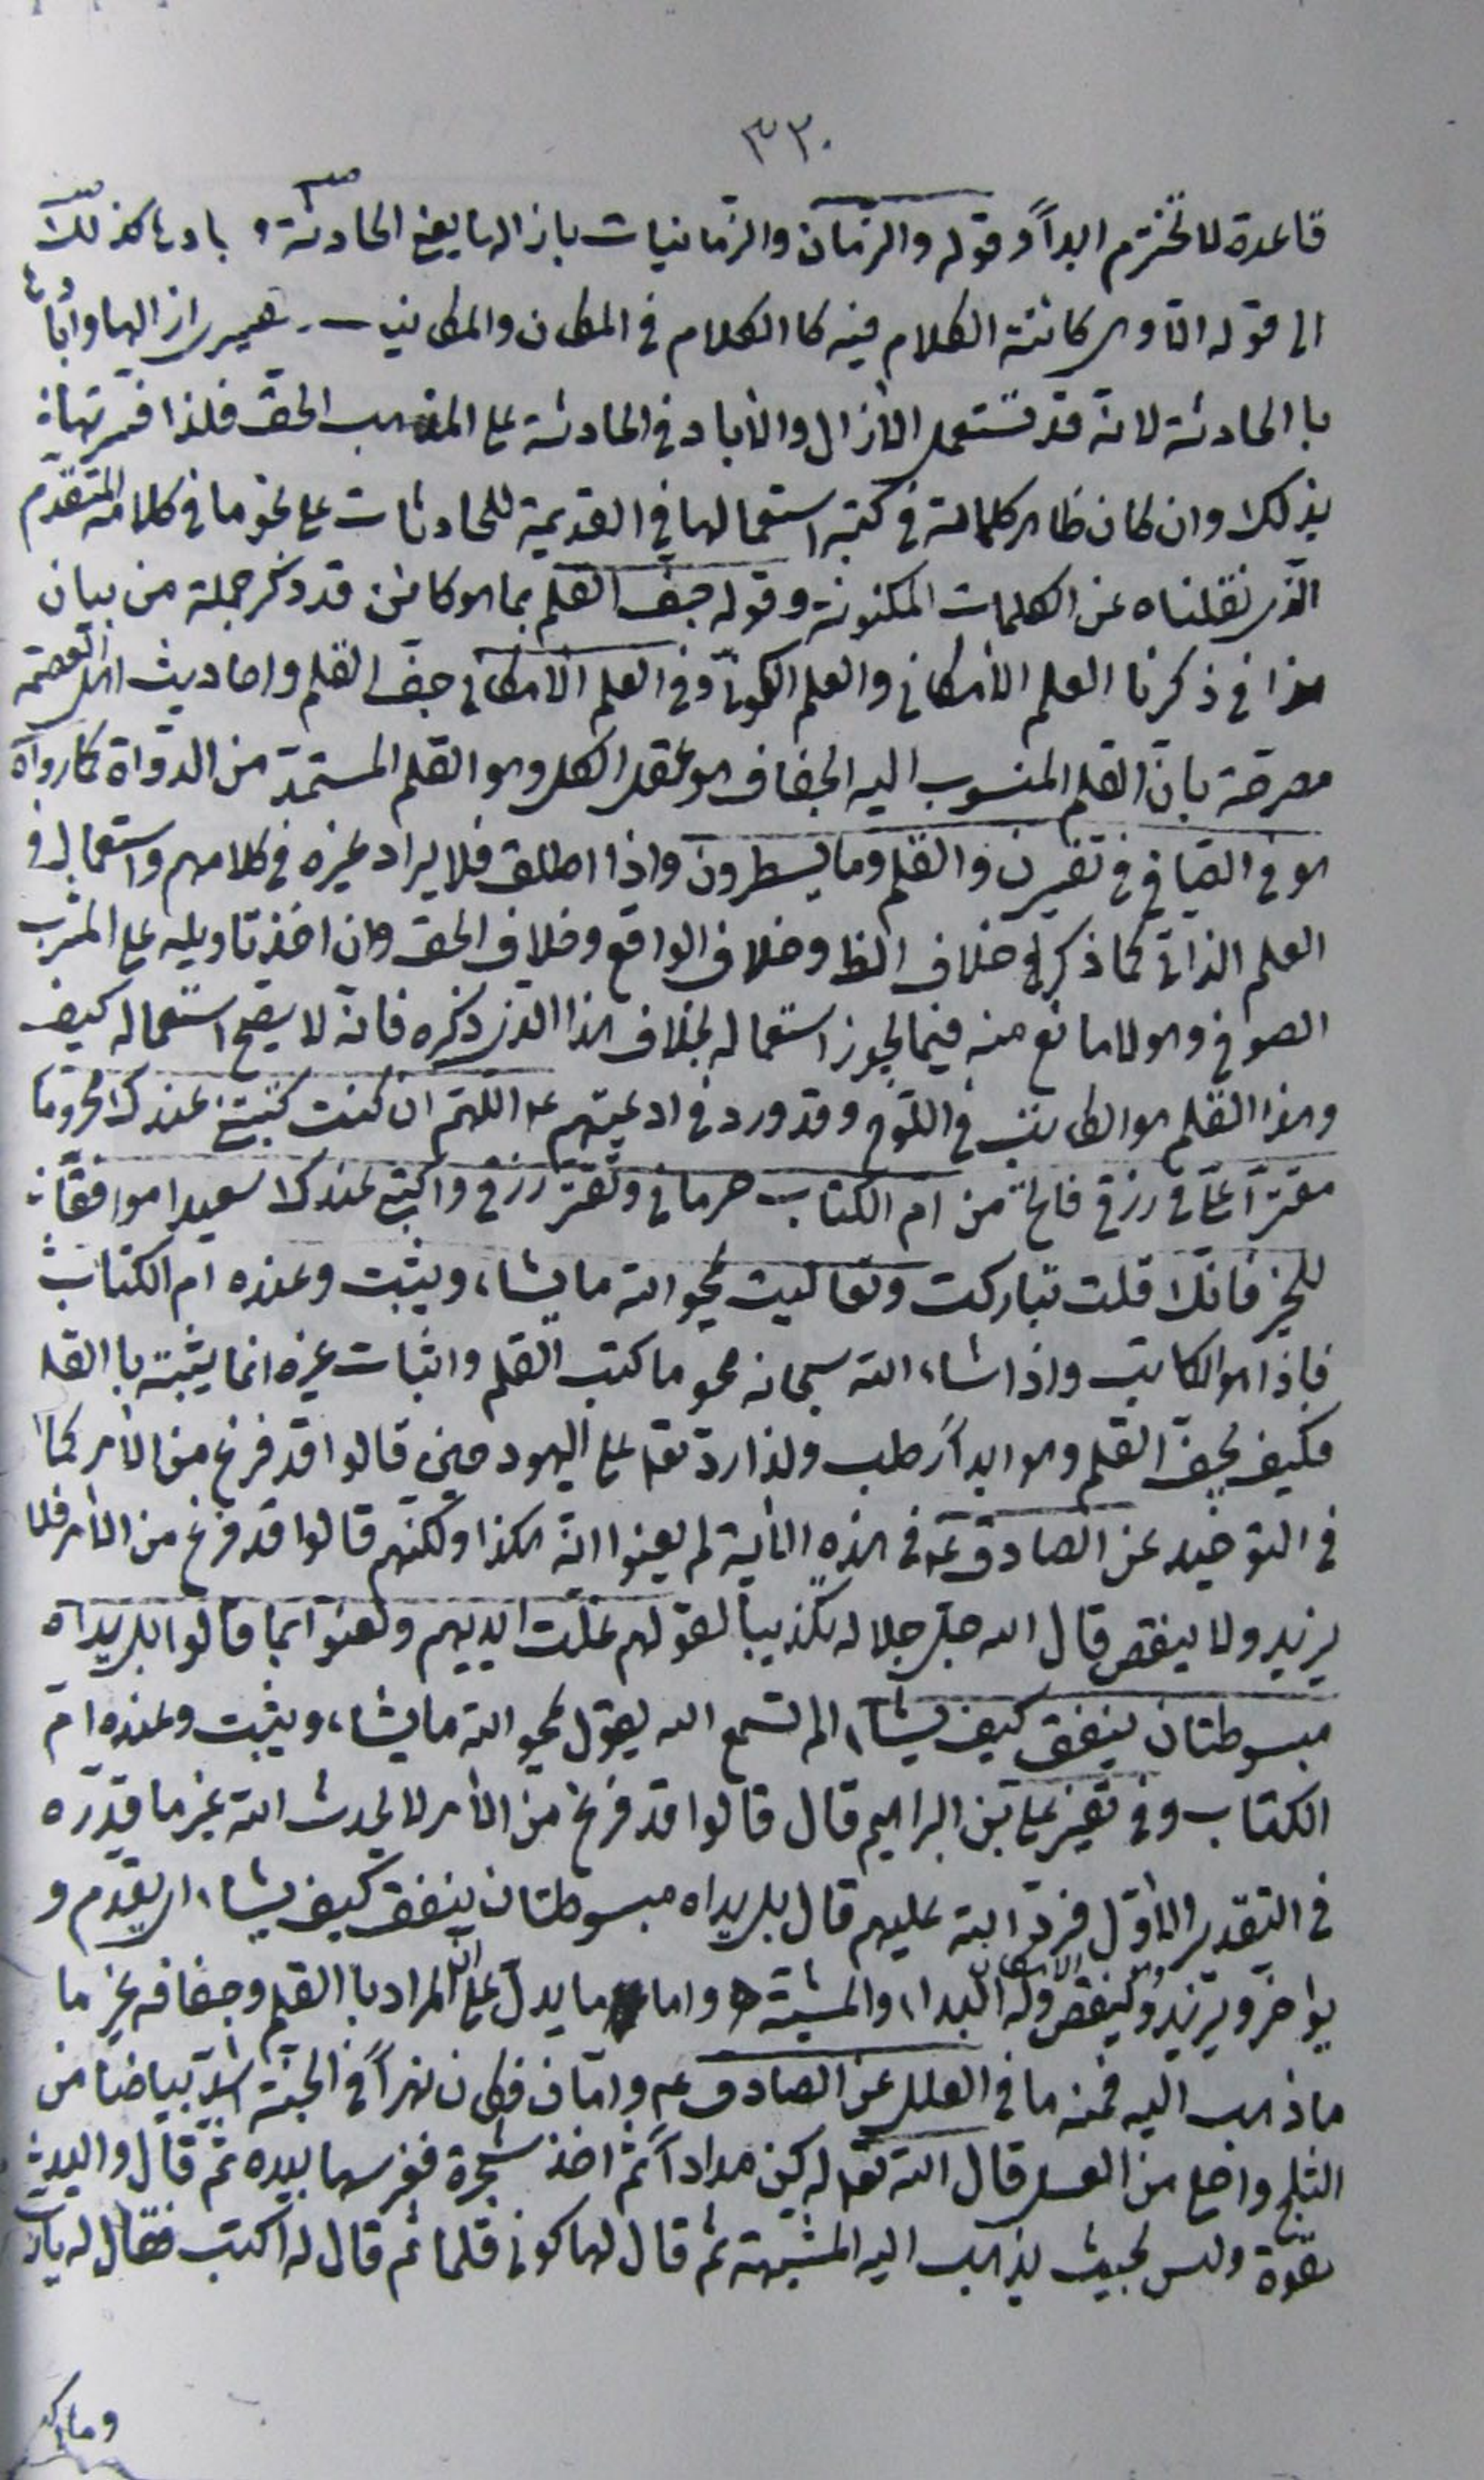 ٣٢٠
قاعدة لا تخترم ابداً وقوله والزمان والزمانيات بازالها يعنى الحادثة وبادها كذلك
الى قوله التاوى كانته الكلام فيه كا الكلام فى المكان والمكانيات تفسير ازالها وابادها
با الحادثة لانه قد تستعمل الأزال والأباد فى الحادثة على المذهب الحق فلذا فسرتها
بذلك وان كان ظاهر كلماته فى كتبه استعمالها فى القديمة للحادثات على نحو ما فى كلامه المتقدم
الذى نقلناه عن الكلمات المكنونة وقوله جف القلم بما هو كائن قد ذكر جملة من بيان
هذا فى ذكرنا العلم الأمكانى والعلم الكونى وفى العلم الأمكانى جف القلم واحاديث اهل العصمة
مصرحة بان القلم المنسوب اليه الجفاف هو عقل الكل وهو القلم المستمد من الدواة كما رواه
هو فى الصافى فى تفسير ن والقلم وما يسطرون واذا اطلق فلا يراد غيره فى كلامهم واستعماله فى
العلم الذاتى كما ذكره خلاف الظ وخلاف الواقع وخلاف الحق وان اخذ تاويله على المشرب
الصوفى وهو لا مانع منه فيما يجوز استعماله بخلاف هذا الذى ذكره فانه لا يصح استعماله كيف
وهذا القلم هو الكاتب فى اللوح وقد ورد فى ادعيتهم ع اللهم ان كنت كتبتنى عندك محروما
مقترا على فى رزقى فامح من ام الكتاب حرمانى وتقتر رزقى واكتبنى عندك سعيدا موافقا
للخير فانك قلت تباركت وتعاليت يمحو الله ما يشاء ويثبت وعنده ام الكتاب
فاذا هو الكاتب واذا شاء الله سبحانه محو ما كتب القلم واثبات غيره انما يثبته با القلم
فكيف يجف القلم وهو ابداً رطب ولذا رد تعا على اليهود حين قالوا قد فرغ من الأمر كما
فى التوحيد عن الصادق ع فى هذه الأية لم يعنوا انه هكذا ولكنهم قالوا قد فرغ من الأمر فلا
يزيد ولا ينقص قال الله جل جلاله تكذيباً لقولهم غلت ايديهم ولعنوا بما قالوا بل يداه
مبسوطتان ينفق كيف يشاء الم تسمع الله يقول يمحو الله ما يشاء ويثبت وعنده ام
الكتاب وفى تفسير على بن ابراهيم قال قالوا قد فرغ من الأمر لا يحدث الله غير ما قدره
فى التقدير الأول فرد الله عليهم قال بل يداه مبسوطتان ينفق كيف يشاء اى يقدم و
يؤاخر ويزيد وينقص وله البداء والمشية واما ما يدل على ان المراد با القلم وجفافه غير ما
ما ذهب اليه فمنه ما فى العلل عن الصادق ع واما ن فكان نهراً فى الجنة اشد بياضا من
الثلج واحلى من العسل قال الله تعا له كن مداداً ثم اخذ شجرة فغرسها بيده ثم قال واليد
القوة وليس بحيث يذهب اليه المشبهة ثم قال لها كونى قلما ثم قال له اكتب فقال له يارب
وما اكتب